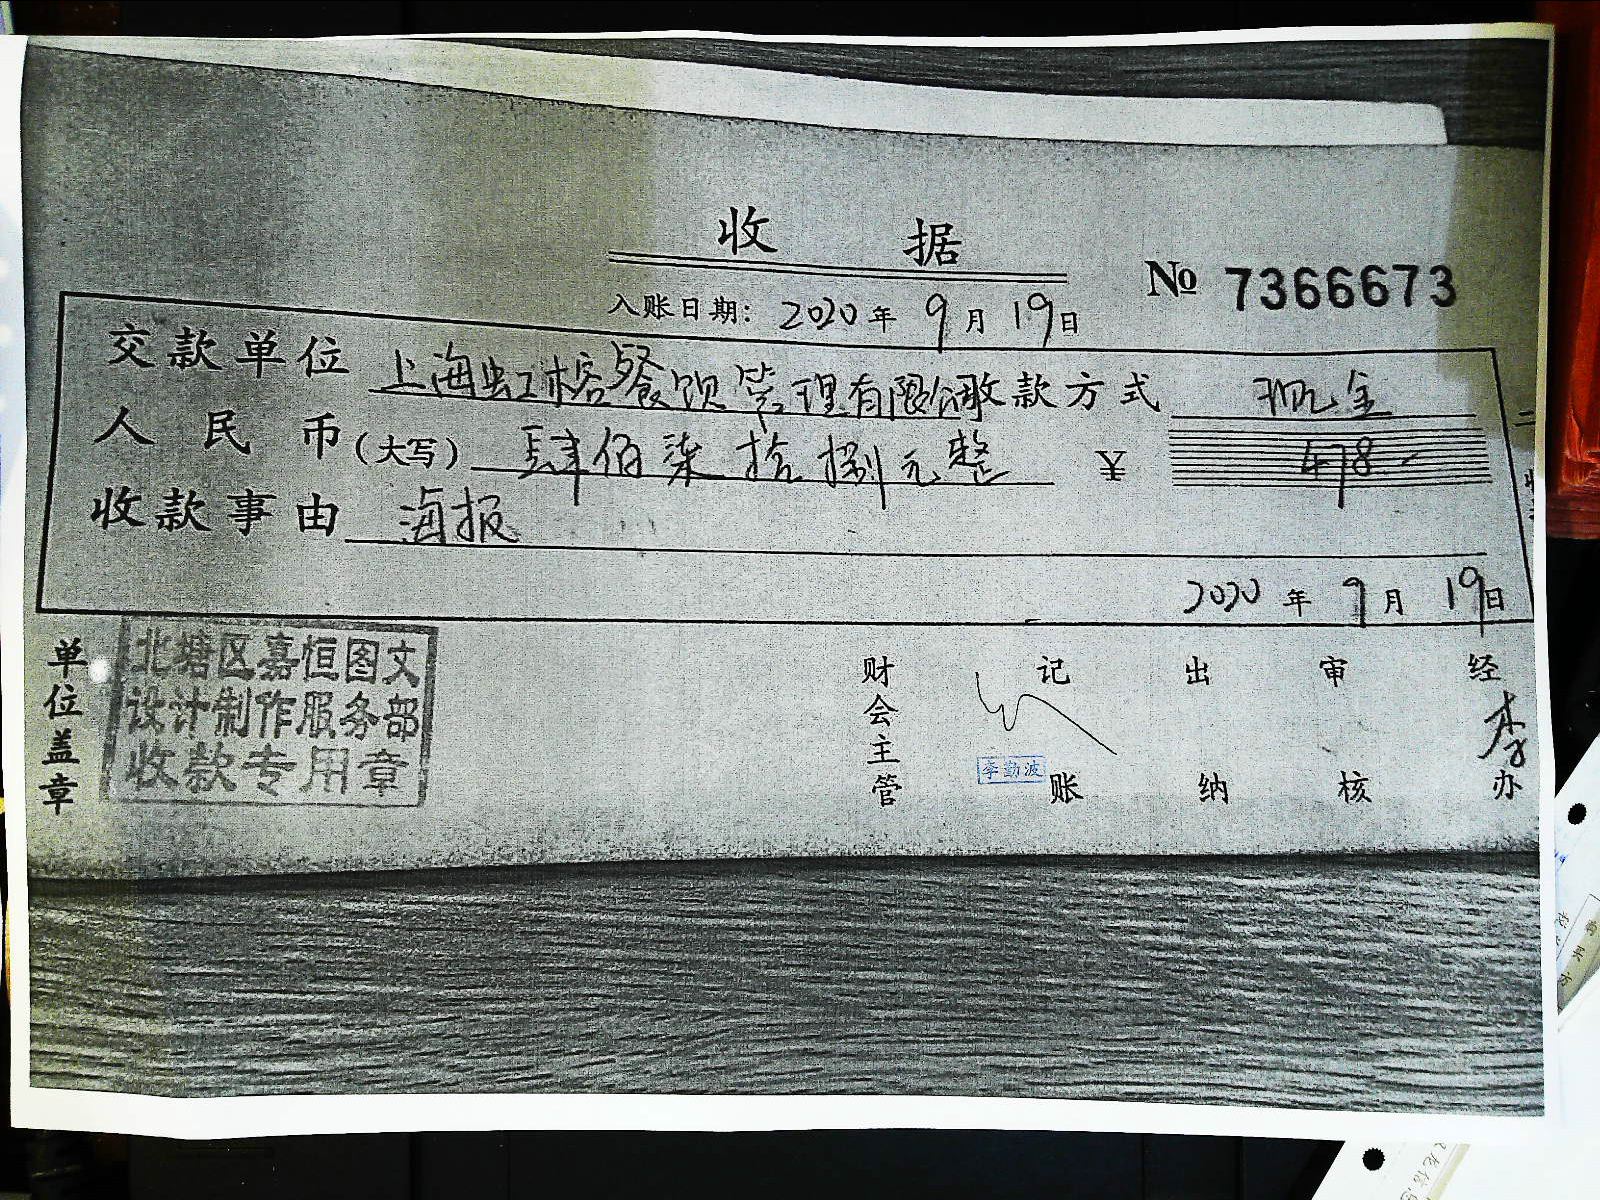 收 据
№ 7366673
入账日期: 2020年 9月 19日
交款单位 上海虹榕餐饮管理有限公司 收款方式 现金
人民币(大写) 肆佰柒拾捌元整 ¥ 478.-
收款事由 海报
2020年 9月 19日
单位盖章
北塘区嘉恒图文
设计制作服务部
收款专用章
财会主管 记账 出纳 审核 经办
李勤波